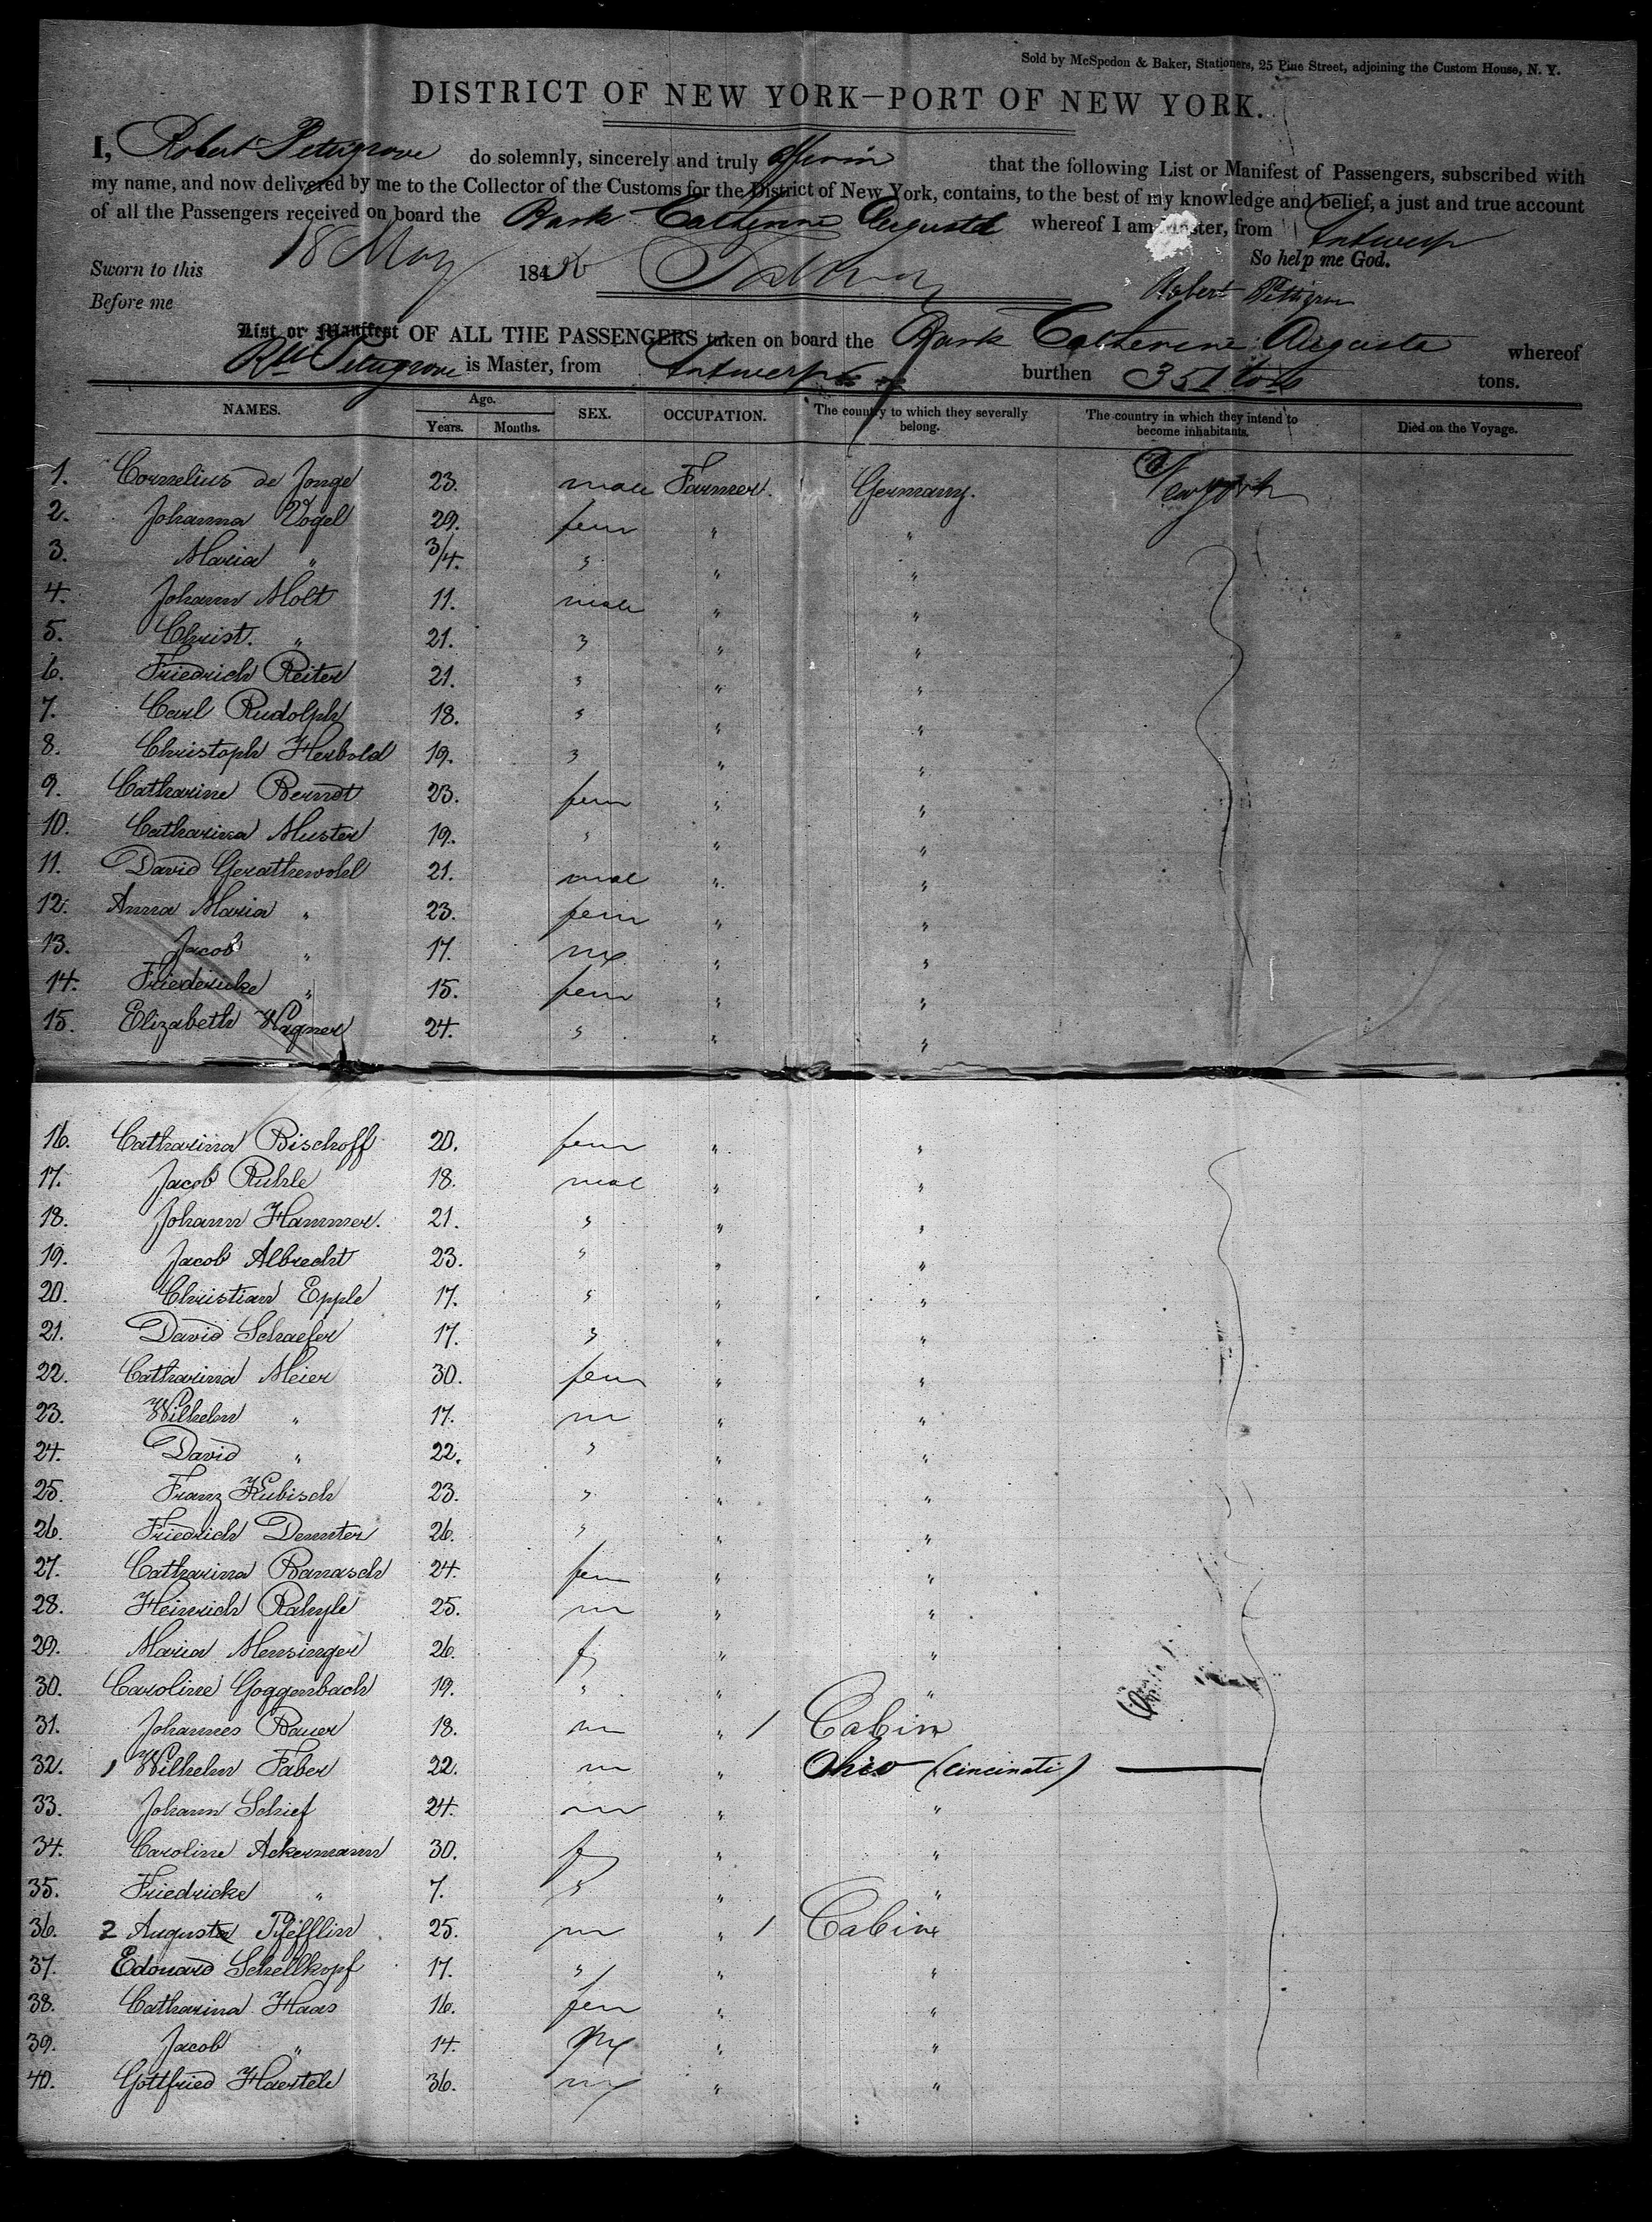 Sold by McSpedon & Baker, Stationers, 25 Pine Street, adjoining the Custom House, N. Y.
DISTRICT OF NEW YORK—PORT OF NEW YORK.
I, Robert Petugrove do solemnly, sincerely and truly affirm that the following List or Manifest of Passengers, subscribed with
my name, and now delivered by me to the Collector of the Customs for the District of New York, contains, to the best of my knowledge and belief, a just and true account
of all the Passengers received on board the Bark Catherine Augusta whereof I am Master, from Antwerp
So help me God.
Sworn to this 18 May 184
Before me
Robert
List or Manifest OF ALL THE PASSENGERS taken on board the Bark Catherine Augusta whereof
Rt Petugrove is Master, from Antwerp burthen 351 tons.
NAMES. Age. Years. Months. SEX. OCCUPATION. The country to which they severally belong. The country in which they intend to become inhabitants. Died on the Voyage.
1. Cornelius de Jonge 23. male Farmer. Germany. New York
2. Johanna Vogel 29. fem " "
3. Maria " 3/4. " " "
4. Johann Molt 11. male " "
5. Christ. " 21. " " "
6. Friedrich Reiter 21. " " "
7. Carl Rudolph 18. " " "
8. Christoph Herbold 19. " " "
9. Catharine Berndt 23. fem " "
10. Catharina Muster 19. " " "
11. David Gerathewohl 21. mal " "
12. Anna Maria " 23. fem " "
13. Jacob " 17. m " "
14. Friedericke " 15. fem " "
15. Elizabeth Wagner 24. " " "
16. Catharina Bischoff 20. fem " "
17. Jacob Ruhle 18. mal " "
18. Johann Hammer. 21. " " "
19. Jacob Albrecht 23. " " "
20. Christian Epple 17. " " "
21. David Schaefer 17. " " "
22. Catharina Meier 30. fem " "
23. Wilhelm " 17. m " "
24. David " 22. " " "
25. Franz Kubisch 23. " " "
26. Friedrich Demuter 26. " " "
27. Catharina Banasch 24. fem " "
28. Heinrich Rahyle 25. m " "
29. Maria Mensinger 26. f " "
30. Caroline Goggenbach 19. " " "
31. Johannes Bauer 18. m " / Cabin
32. Wilhelm Faber 22. m " Ohio (cincinati)
33. Johann Schief 24. m " "
34. Caroline Ackermann 30. f " "
35. Friedricke " 7. " " "
36. 2 Augusta Pfefflin 25. m " / Cabin
37. Edouard Schellkopf 17. " " "
38. Catharina Haas 16. fem " "
39. Jacob " 14. m " "
40. Gottfried Haertele 36. m " "